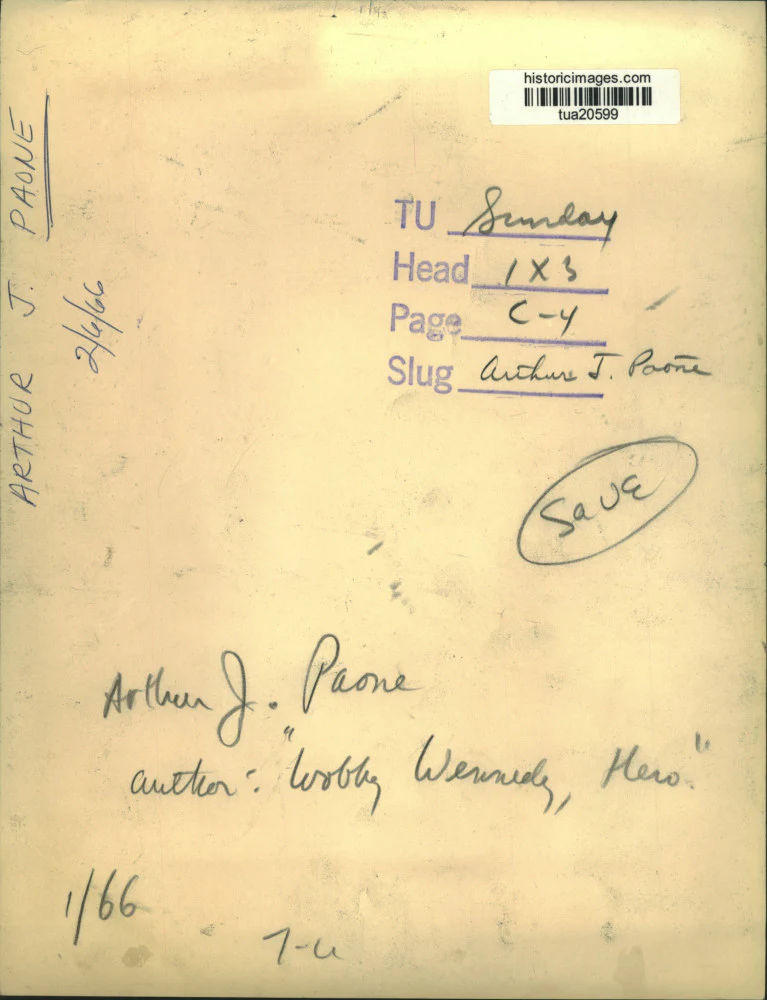 historicimages.com
tua20599
ARTHUR J. PAONE
2/6/66
TU Sunday
Head 1 X 3
Page C-4
Slug Arthur J. Paone
SaVE
Arthur J. Paone
author: "Wobby Wennedy, Hero."
1/66
T-U